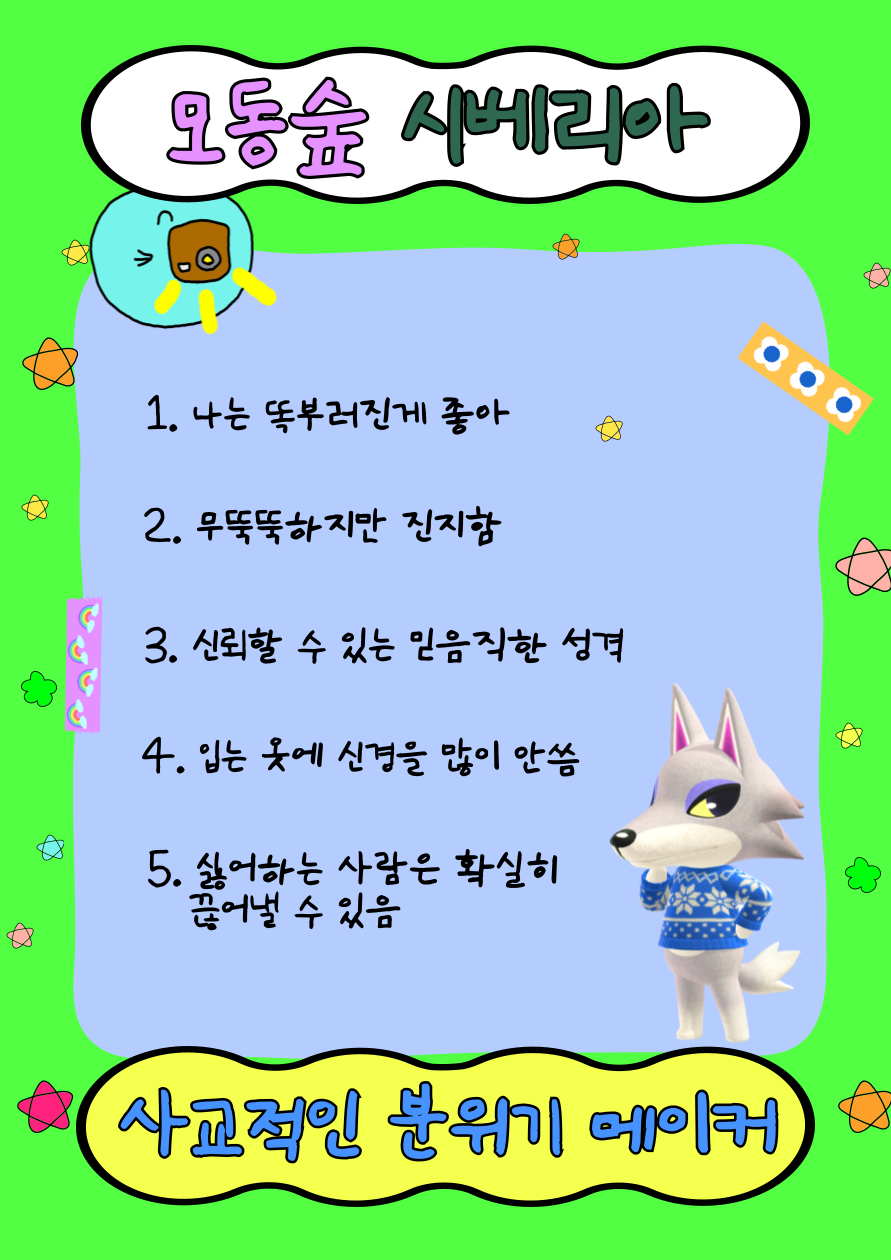 모동숲 시베리아
1. 나는 똑부러진게 좋아
2. 무뚝뚝하지만 진지함
3. 신뢰할 수 있는 믿음직한 성격
4. 입는 옷에 신경을 많이 안씀
5. 싫어하는 사람은 확실히
끊어낼 수 있음
사교적인 분위기 메이커